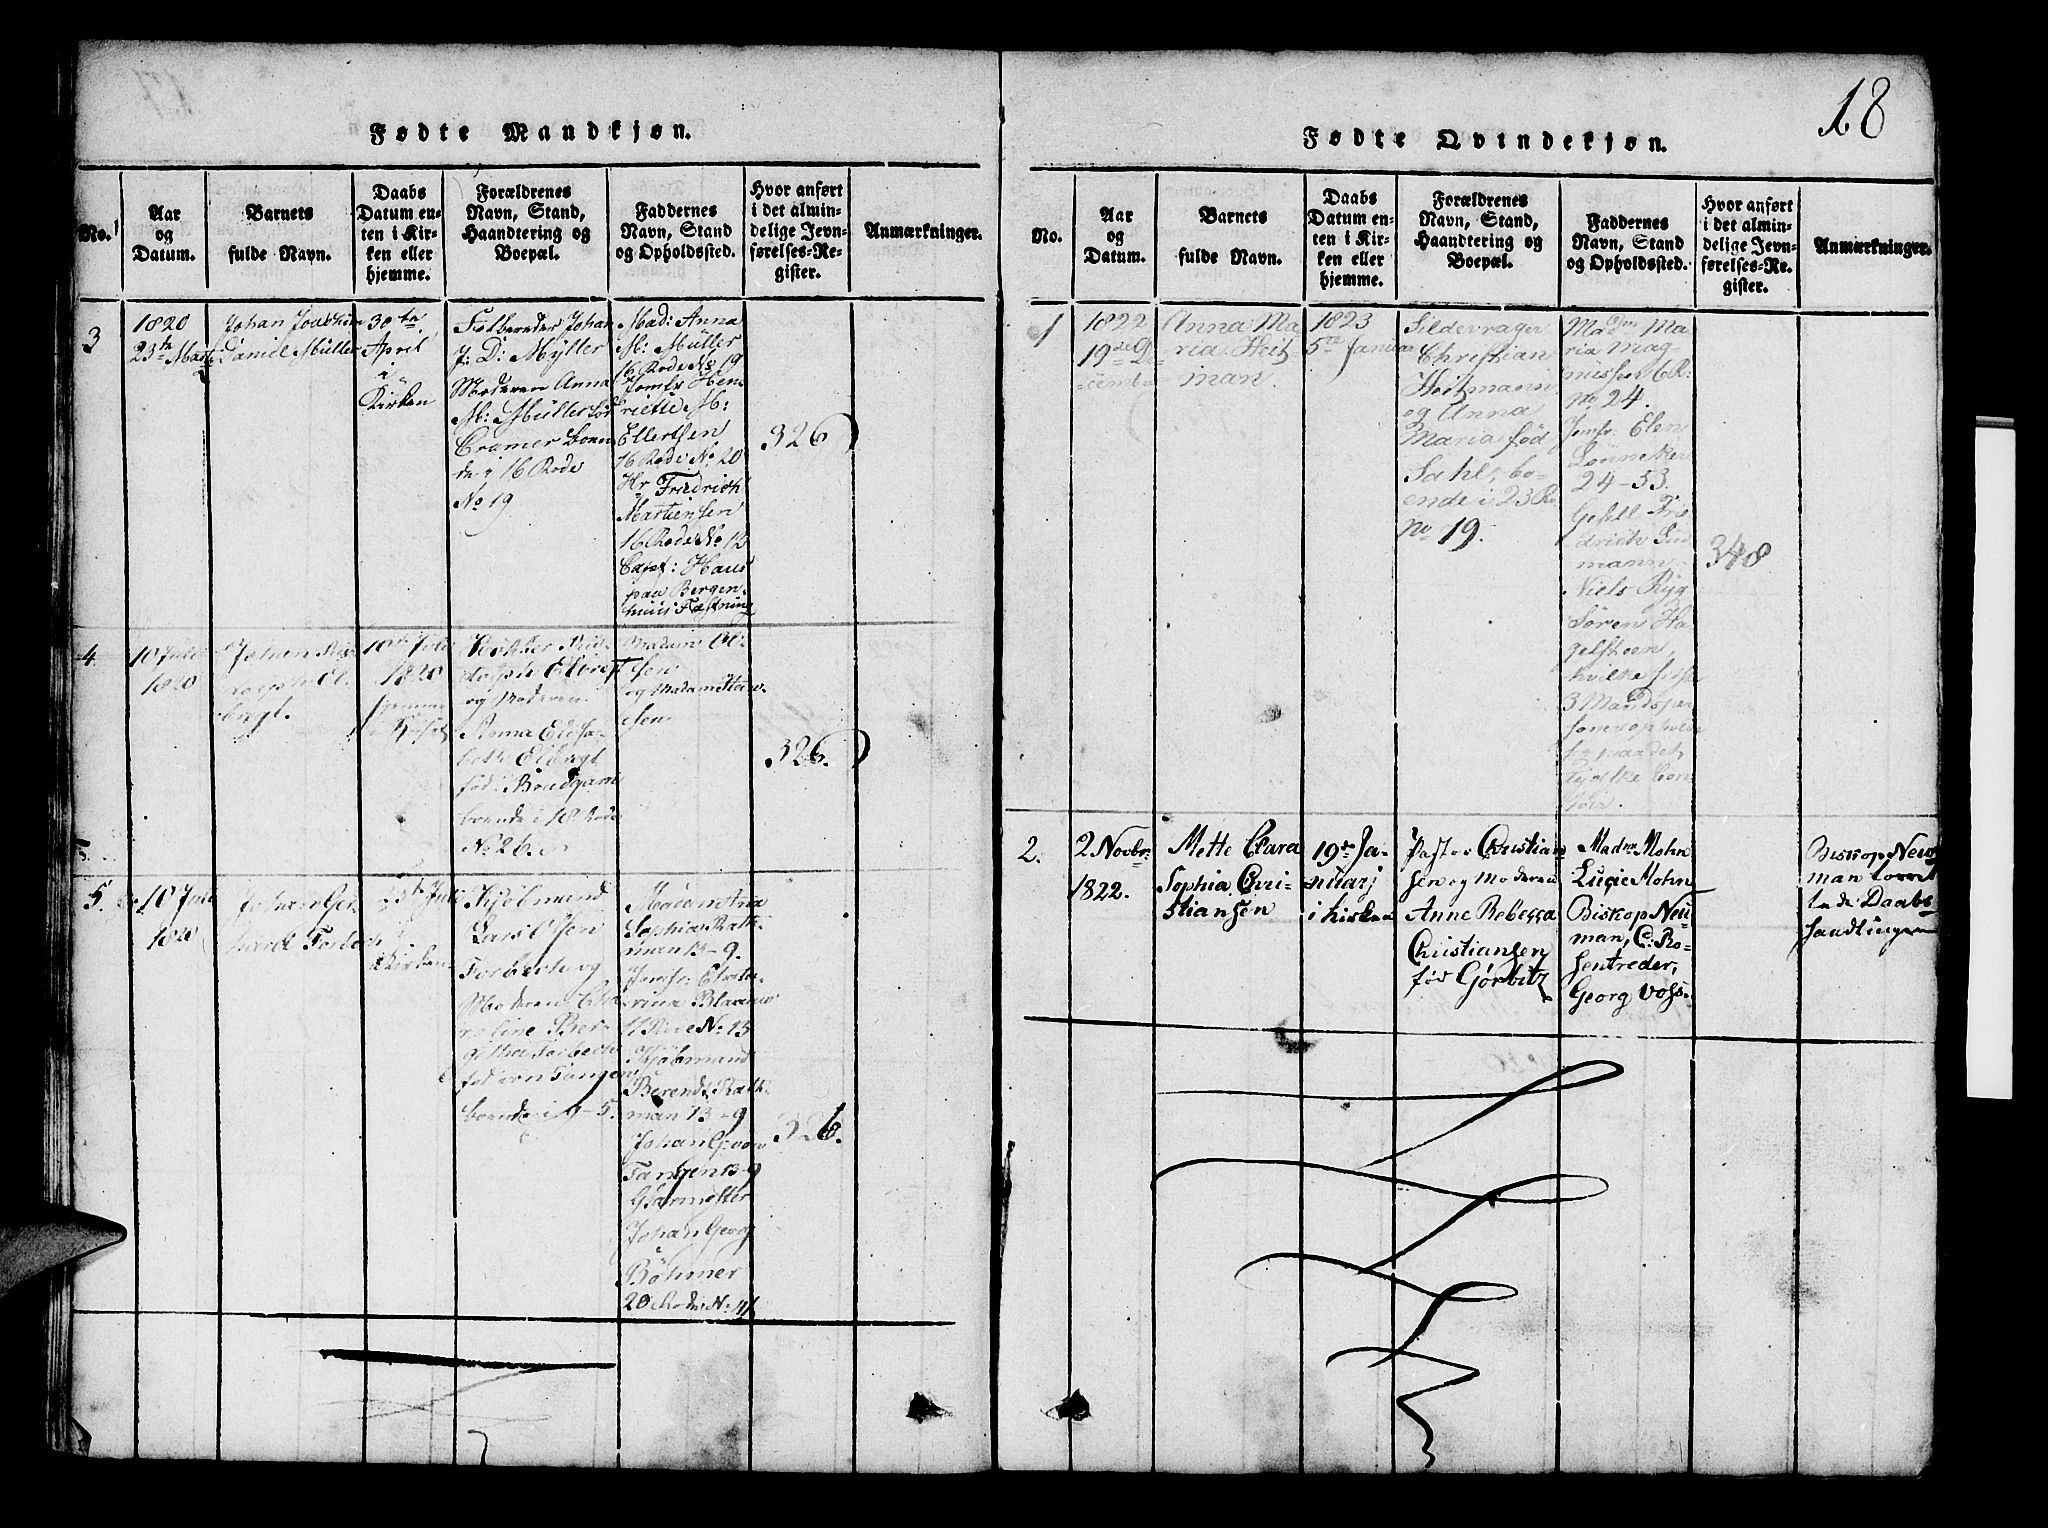 Fødte Mandkjøn.
No.
Aar
og
Datum.
Barnets
fulde Navn.
Daabs
Datum en-
ten i Kir-
ken eller
hjemme.
Forældrenes
Navn, Stand,
Haandtering og
Boepæl.
Faddernes
Navn, Stand
og Opholdssted.
Hvor anført
i det almin-
delige Jevn-
førelses-Re-
gister.
Anmærkninger.
3
1820
23te Marts
Johan Joachim
Daniel Müller
30te
April
i
Kirken
Johan
J: D: Myller
Moderen Anna
M: Müller
Cramer boen-
de i 16 Rode
No 19
Mad: Anna
M: Müller
16 Rode No 19
Jomfr Hen-
riette M:
Ellertsen
16 Rode No 20
Hr Friedrich
Martensen
16 Rode No 13
Capt: Haus
paa Bergen-
huus Fæstning
326
4
10 Juli
1820
Johan
1820
og Moderen
Anna Elisa-
beth
boende i 18 Rode
No 26.
Madam Ol-
sen
og Madam Han-
sen
326.
5.
10 Juli
1820
Johan Ger-
hard Forbech
Juli
Kirken
Kjøbmand
Lars Olsen
Forbech og
Moderen
roline Ber-
getha Forbech
fød von Tangen
boende i 9-5.
Madam Ana
Sophia Rath-
man 13-9.
Jomfr: Catha-
rina Blaauw
11 Rode No 13
Kjøbmand
Berendt Rath-
man 13-9
Johan G: von
Tangen 13-9
Glarmester
Johan Georg
Böhmer
20 Rode No
326.
18
Fødte Qvindekjøn.
No.
Aar
og
Datum.
Barnets
fulde Navn.
Daabs
Datum en-
ten i Kir-
ken eller
hjemme.
Forældrenes
Navn, Stand,
Haandtering og
Boepæl.
Faddernes
Navn, Stand
og Opholdssted.
Hvor anført
i det almin-
delige Jevn-
førelses-Re-
gister.
Anmærkninger.
1
1822
19de D
Anna Ma-
ria Heit-
man.
1823
5te Januar
Sildevrager
Christian
Heitmann
og Anna
Maria fød
Sahl, bo-
ende i 23 Ro
No 19.
Madm Ma-
ria Mag-
nussen 6 R:
No 24.
Jomfr: Elen
24-53.
Gesell Frie-
drich
mann
Niels Ryg
Søren Ha-
gelsteen,
hvilke sidste
3 Mandsper-
soner opholder
sig paa det
tydske Con-
toir.
348
2.
2 Novbr.
1822.
Mette Clara
Sophia Chri-
stiansen
19de Ja-
nuarj
i kirken
Pastor Christian-
sen og Moderen
Anne Rebecca
Christiansen
fød Gørbitz
Madm Mohn
Lucie Mohn
Biskop Neu-
man, C: Ro-
sentreder,
Georg Voss.
Biskop Neu-
man forret-
tede Daabs-
handlingen